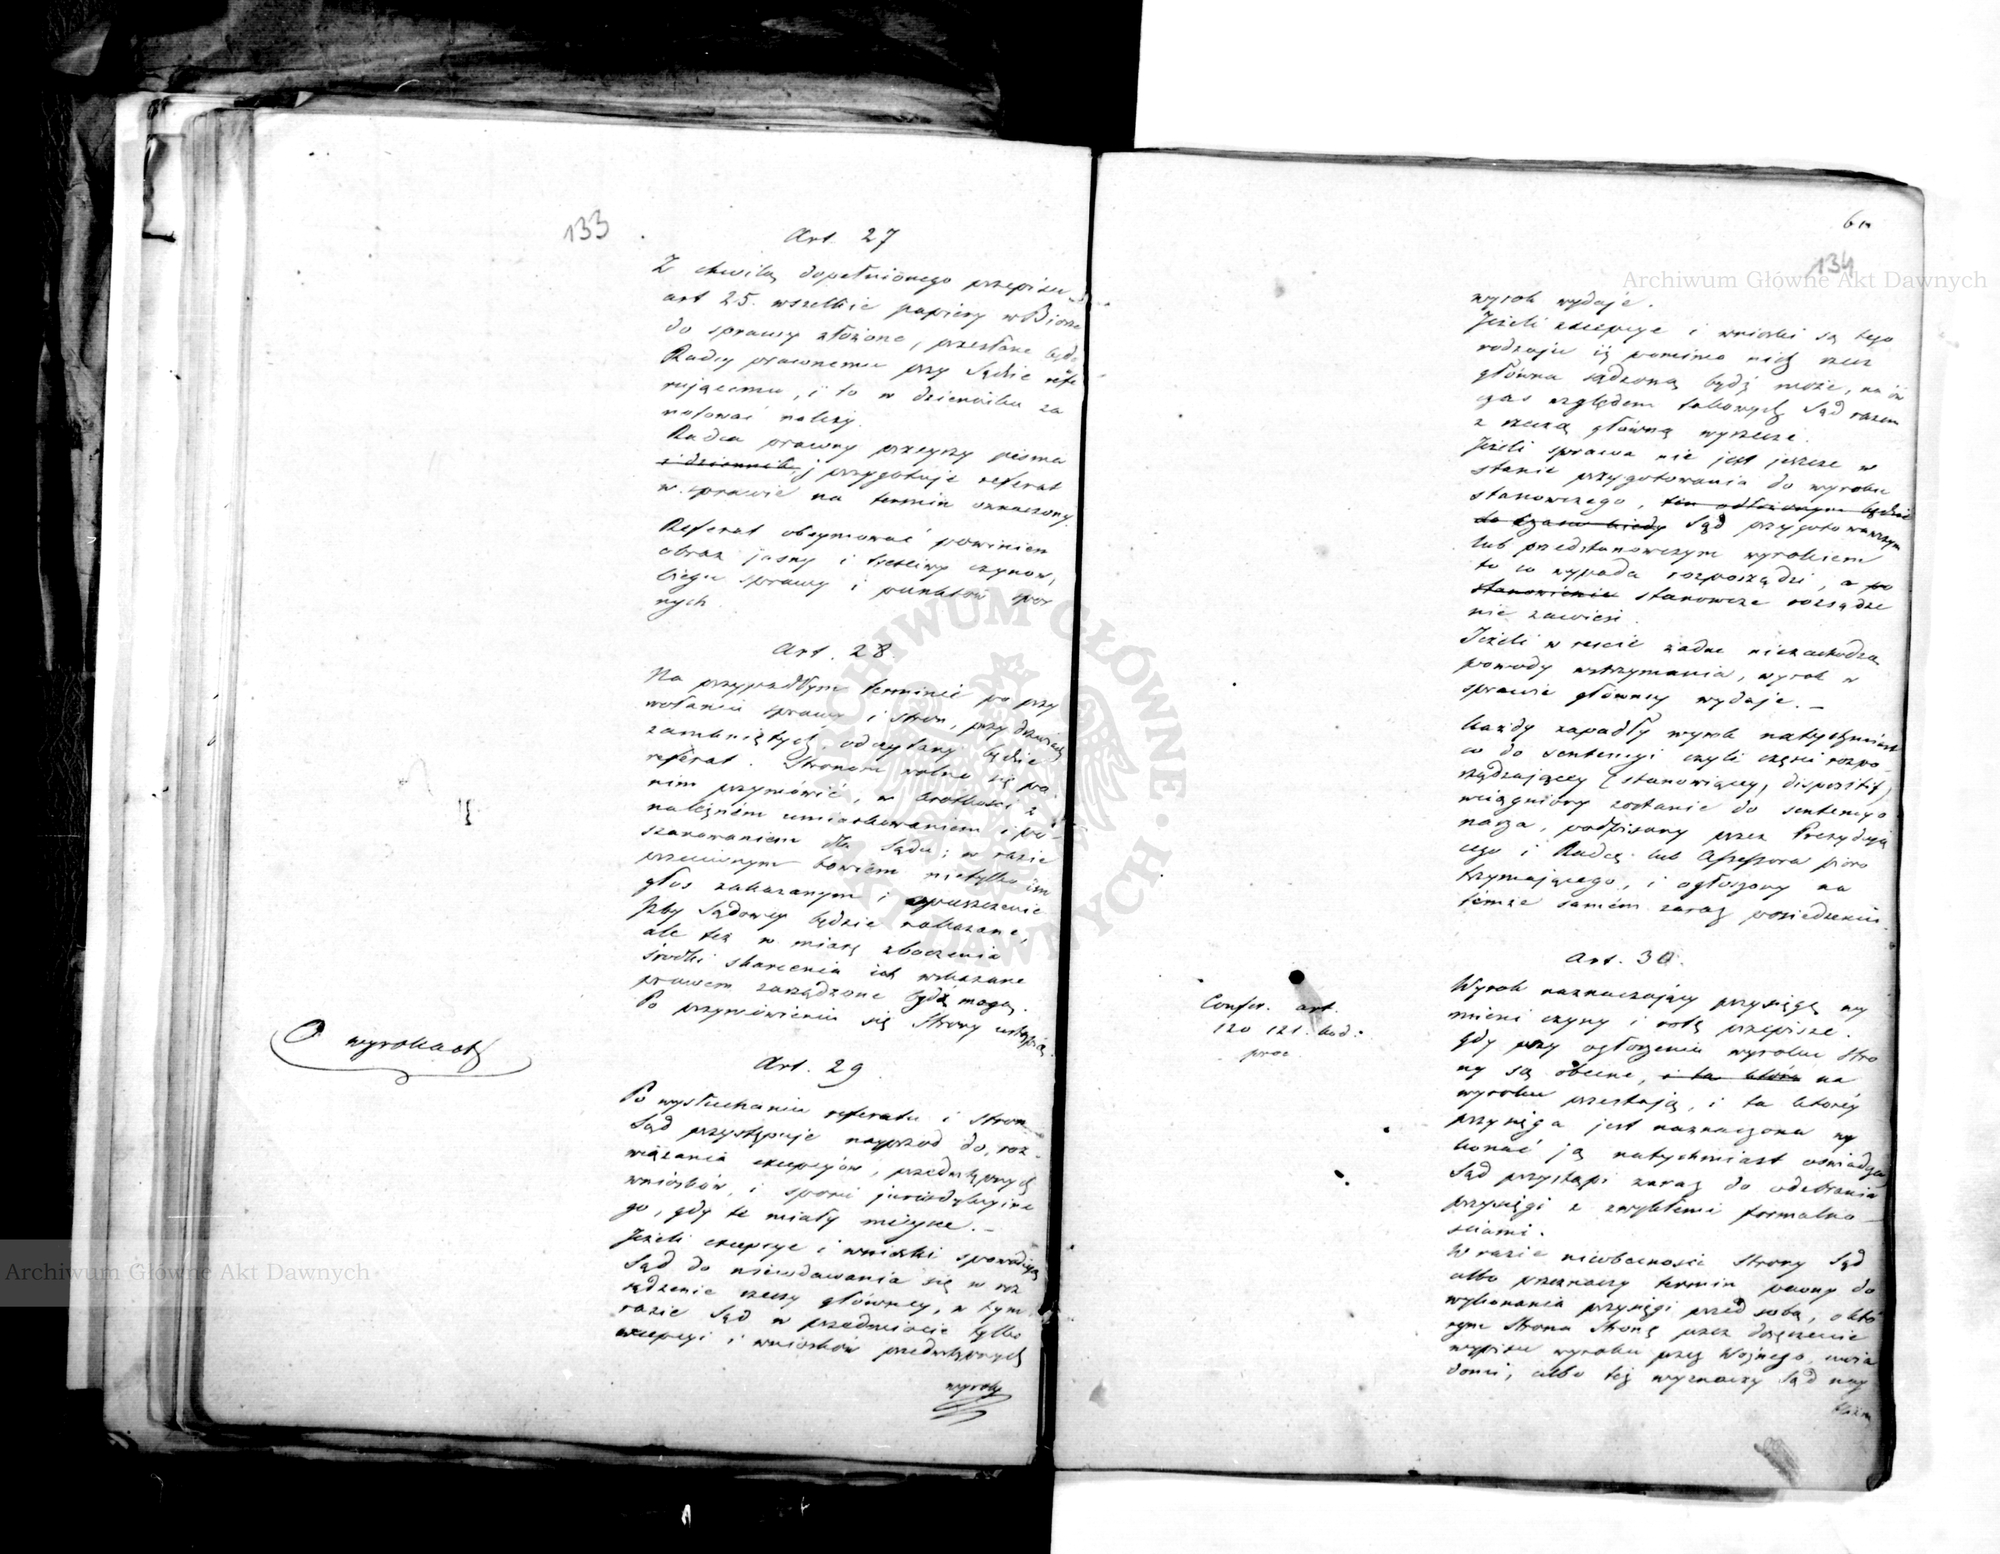 133
Art. 27
Z chwilą dopełnionego przepisu
art 25. wszelkie papiery w Biórze
do sprawy złożone, przesłane będą
Radcy prawnemu przy Sądzie refe
rującemu, i to w dzienniku za
notować należy.
Radca prawny przeyrzy pisma
i dziennik, i przygotuje referat
w sprawie na termin oznaczony.
Referat obeymować powinien
obraz jasny i treściwy czynów,
biegu sprawy i punktów spor
nych.
Art. 28.
Na przypadłym terminie po przy
wołaniu sprawy i stron, przy drzwiach
zamkniętych, odczytany będzie
referat. Stronom wolno się po
nim przymówić, w krótkości z
należnem umiarkowaniem i po-
szanowaniem dla Sądu; w razie
przeciwnym bowiem nietylko im
głos zakazanym i opuszczenie
Izby Sądowey będzie nakazane,
ale też w miarę zboczenia
środki skarcenia ich wskazane
prawem zarządzone bydź mogą.
Po przymówieniu się Strony ustąpią.
O wyrokach
Art. 29.
Po wysłuchaniu referatu i stron
Sąd przystępuje nayprzód do roz-
wiązania excepcyów, przedwstępnych
wniosków, i sporu jurisdykcyine
go, gdy te miały mieysce. –
Jeżeli excepcye i wnioski spowodują
Sąd do niewdawania się w roz
sądzenie rzeczy główney, w tym
razie Sąd w przedmiocie tylko
excepcyi i wniosków przedwstępnych
wyrok
60
134
wyrok wydaje.
Jeżeli excepcye i wnioski są tego
rodzaju iż pomimo nich rzecz
główna sądzoną bydź może, na ów
czas względem takowych Sąd razem
z rzeczą główną wyrzecze.
Jeżeli sprawa nie jest jeszcze w
stanie przygotowania do wyroku
stanowczego, ten odłożonym będzie
do czasu kiedy Sąd przygotowawczym
lub przedstanowczym wyrokiem
to co wypada rozporządzi, a po
stanowieniu stanowcze rozsądze
nie zawiesi.
Jeżeli w reście żadne niezachodzą
powody wstrzymania, wyrok w
sprawie główney wydaje. –
Każdy zapadły wyrok natychmiast
co do sentencyi czyli części rozpo-
rządzającey (stanowiącey, dispositif)
wciągniony zostanie do sentencyo
narza, podpisany przez Prezydują
cego i Radcę lub Assessora pióro
trzymającego, i ogłoszony na
temże samém zaraz posiedzeniu.
Art. 30.
Confer. art.
120 121. kod:
proc.
Wyrok naznaczający przysięgę wy
mieni czyny i rotę przepisze.
Gdy przy ogłoszeniu wyroku stro
ny są obecne, i ta która na
wyroku przestają, i ta którey
przysięga jest naznaczona wy
konać ją natychmiast oświadcza,
Sąd przystąpi zaraz do odebrania
przysięgi z zwykłemi formalno-
ściami.
W razie nieobecności Strony Sąd
albo przeznaczy termin pewny do
wykonania przysięgi przed sobą, o któ
rym Strona Stronę przez doręczenie
wypisu wyroku przez Woźnego, uwia
domi, albo też wyznaczy Sąd nay